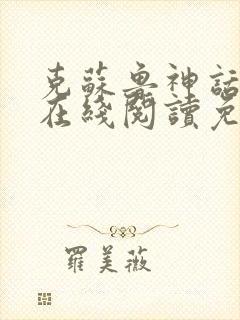 克蘇魯神話
在綫閱讀免
羅美薇